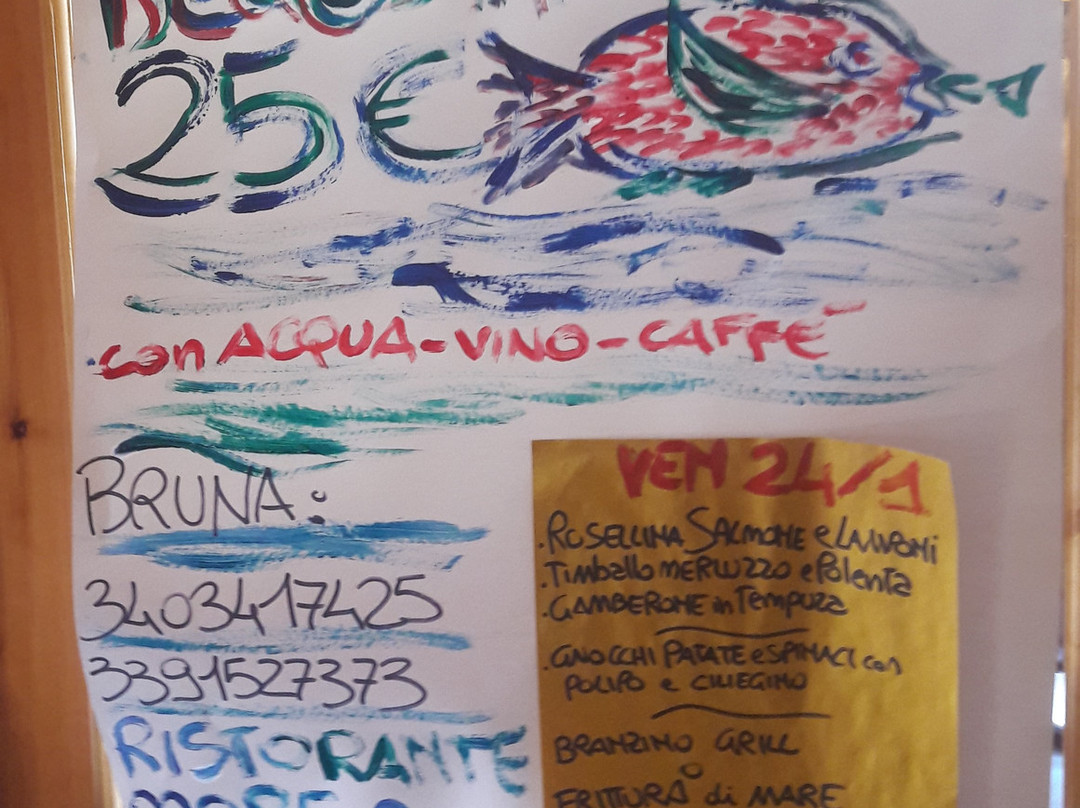 25 €
con ACQUA-VINO-CAFFE'
BRUNA:
3403417425
3391527373
RISTORANTE
VEN 24/1
.ROSELLINA SALMONE e LAMPONI
.TIMballo MERLUZZO e Polenta
.GAMBERONE in Tempura
.GNOCCHI PATATE e SPINACI con
POLIPO e CILIEGINO
BRANZINO GRILL
O
FRITTURA di MARE